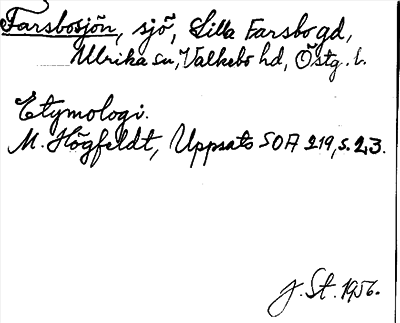 Farsbosjön, sjö, Lilla Farsbo gd,
Ulrika sn, Valkebo hd, Östg. l.
Etymologi.
M. Högfeldt, Uppsats SOA 219, s. 23.
J. St. 1956.